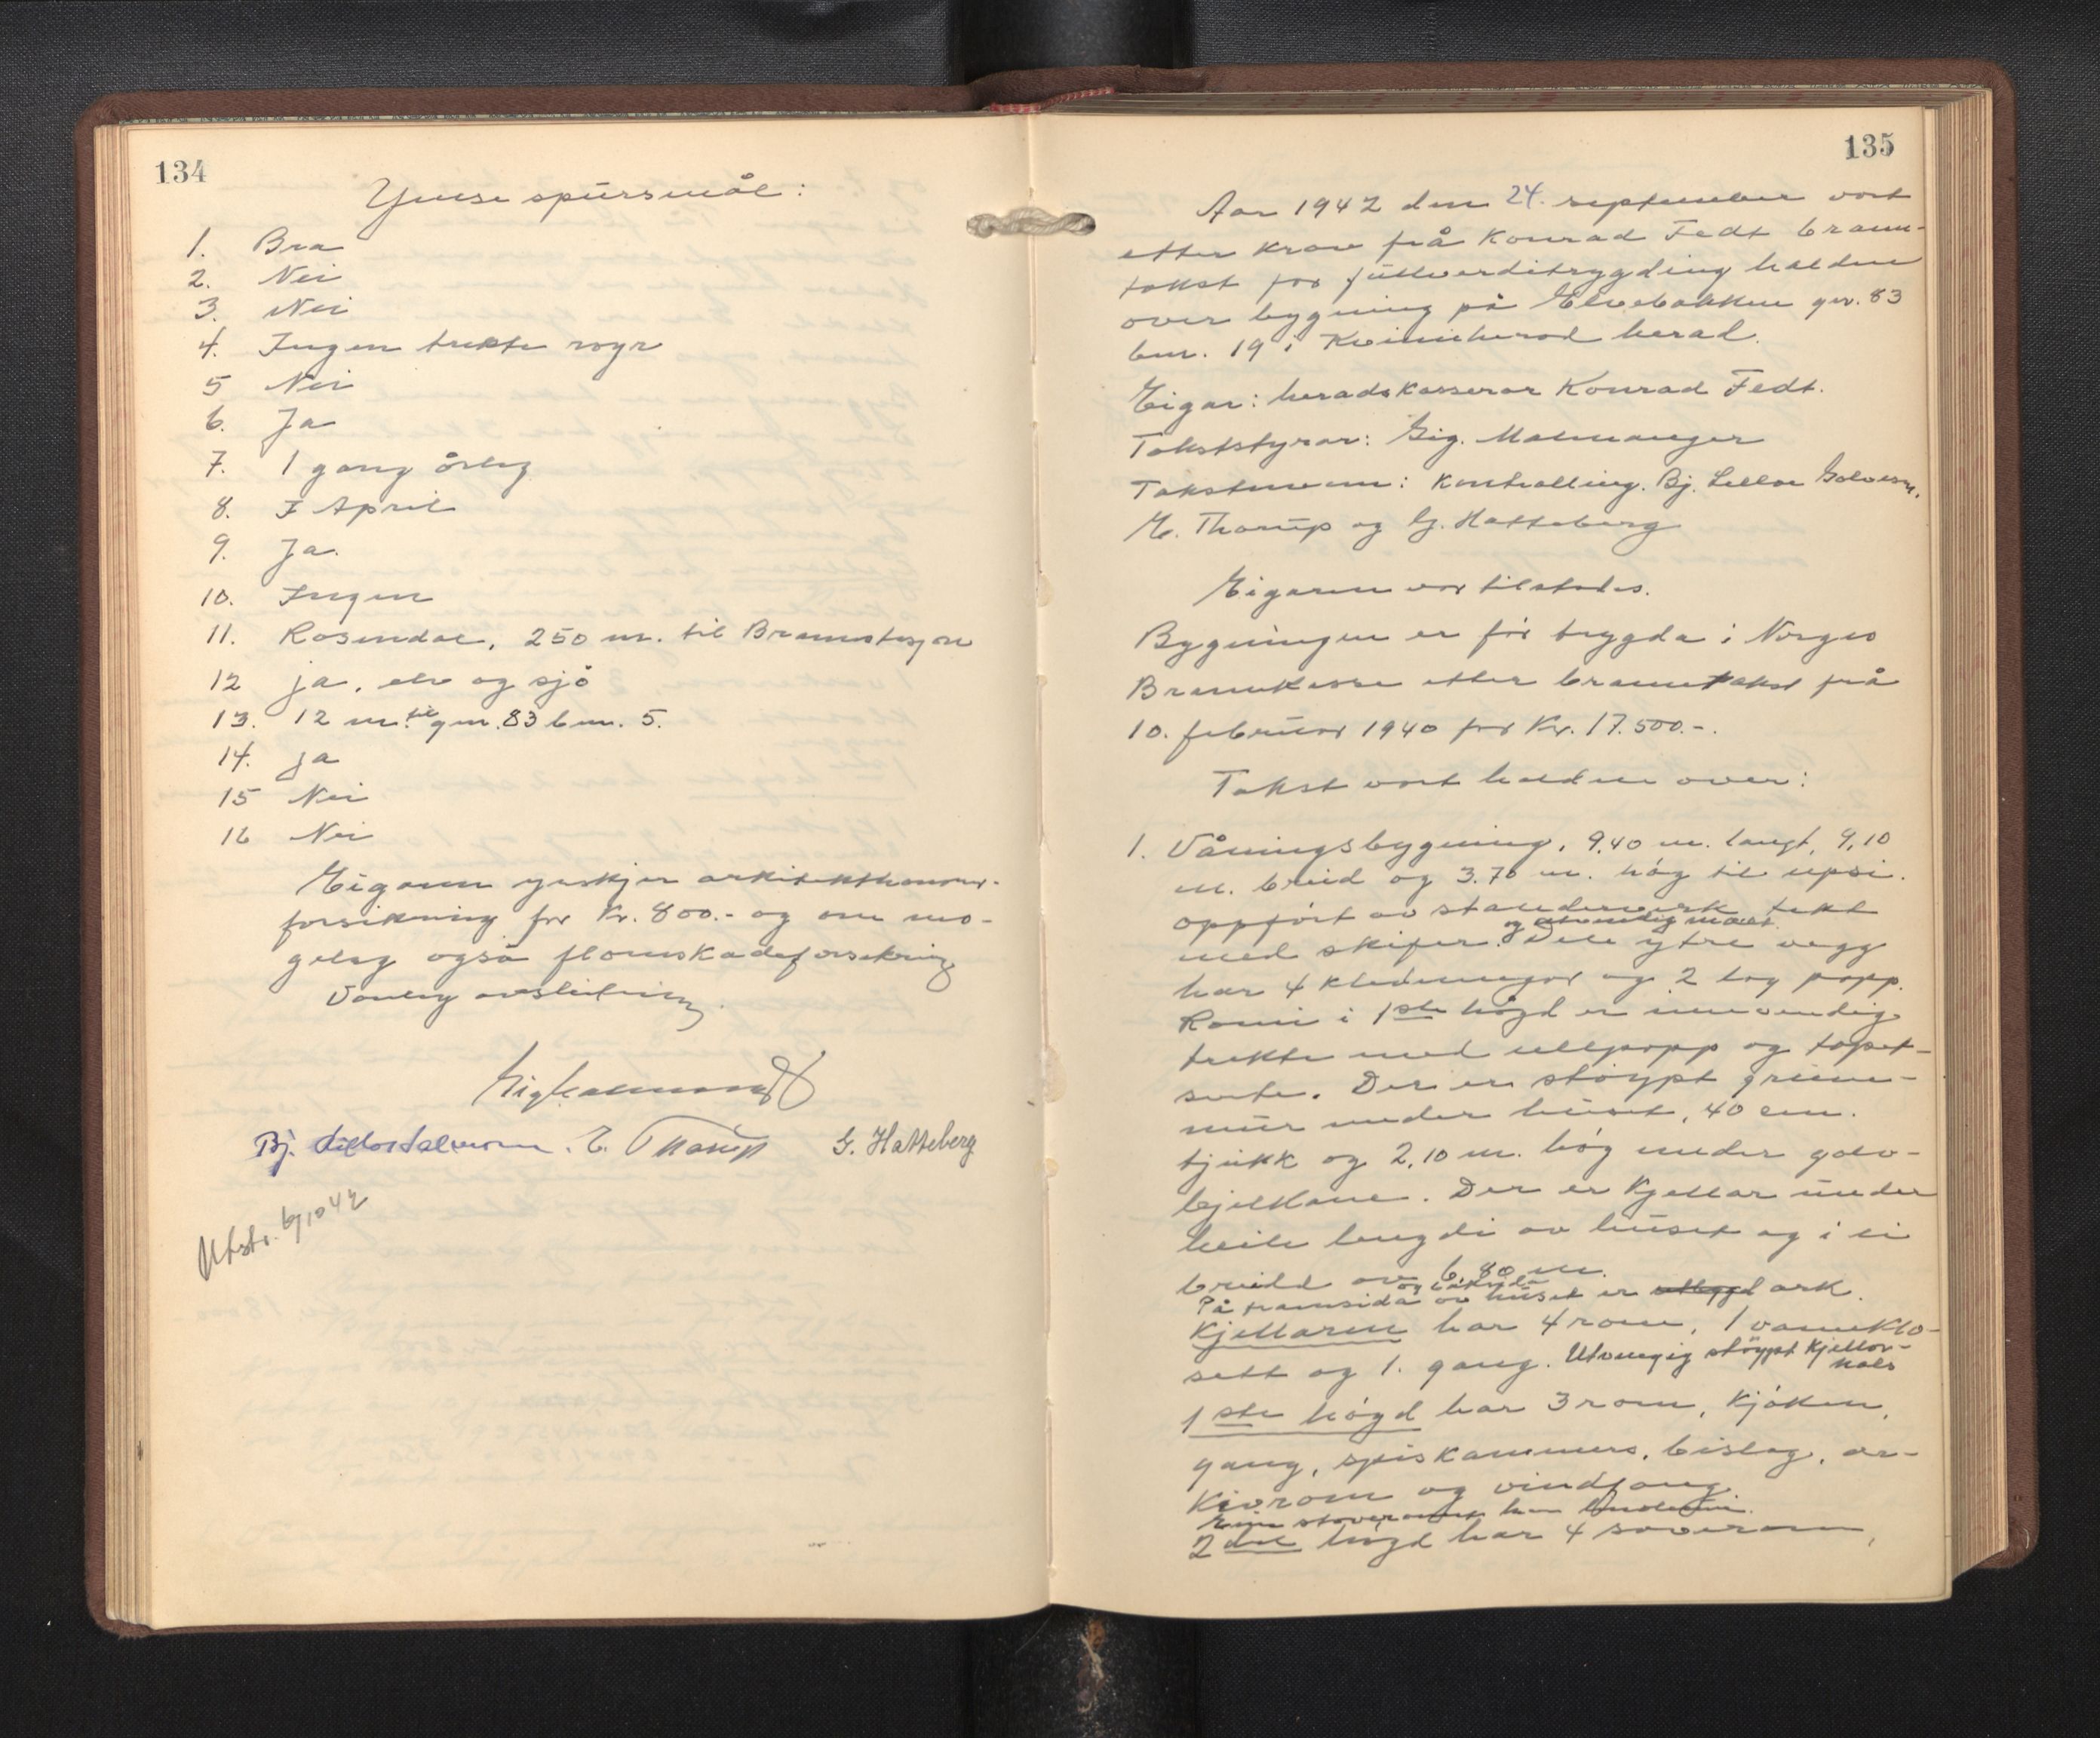 134
Ymse spursmål:
1. Bra
2. Nei
3. Nei
4. Ingen trekte røyr
5 Nei
6. Ja
7. 1 gang årleg
8. I April
9. Ja.
10. Ingen
11. Rosendal, 250 m. til Brannstasjon
12 ja, elv og sjø
13. 12 m. til gnr. 83 bnr. 5.
14. ja
15 Nei
16 Nei
Eigaren ynskjer arkitekthonorar-
forsikring for Kr. 800.- og om mo-
geleg også flomskadeforsekring
Vanleg avslutning.
E. Thorup G. Hatteberg
Utskr. 6/10 42
135
Aar 1942 den 24. september vart
etter krav frå Konrad Fedt brann-
takst for fullverditrygding halden
over bygning på Elvebakken gnr. 83
bnr. 19 i Kvinnherad herad.
Eigar: heradskasserar Konrad Fedt.
Takststyrar: Sig. Malmanger
Takstmenn: Kontrolling. Bj. Lillo
E. Thorup og G. Hatteberg
Eigaren var tilstades.
Bygningen er før trygda i Norges
Brannkasse etter branntakst frå
10. februar 1940 for Kr. 17.500.-.
Takst vart halden over:
1. Våningsbygning, 9,40 m. langt, 9,10
m. breid og 3.70 m. høg til upsi.
oppført av standerverk tekt
og utvendig malt.
med skifer. Dele ytre vegg
har 4 kledningar og 2 lag papp.
Romi i 1ste høgd er innvendig
trekte med ullpapp og tapet-
serte. Der er støypt grunn-
mur under huset, 40 cm.
tjukk og 2,10 m. høg under golv-
bjelkane. Der er kjellar under
heile lengdi av huset og i ei
breidd av 6,80 m.
og baksida
På framsida av huset er utbygd ark.
Kjellaren har 4 rom, 1 vannklo-
sett og 1. gang. Utvengig støypt kjellar-
hals
1ste høgd har 3 rom, kjøken,
gang, spiskammers, bislag, ar-
kivrom og vindfang.
2dre høgd har 4 soverom,